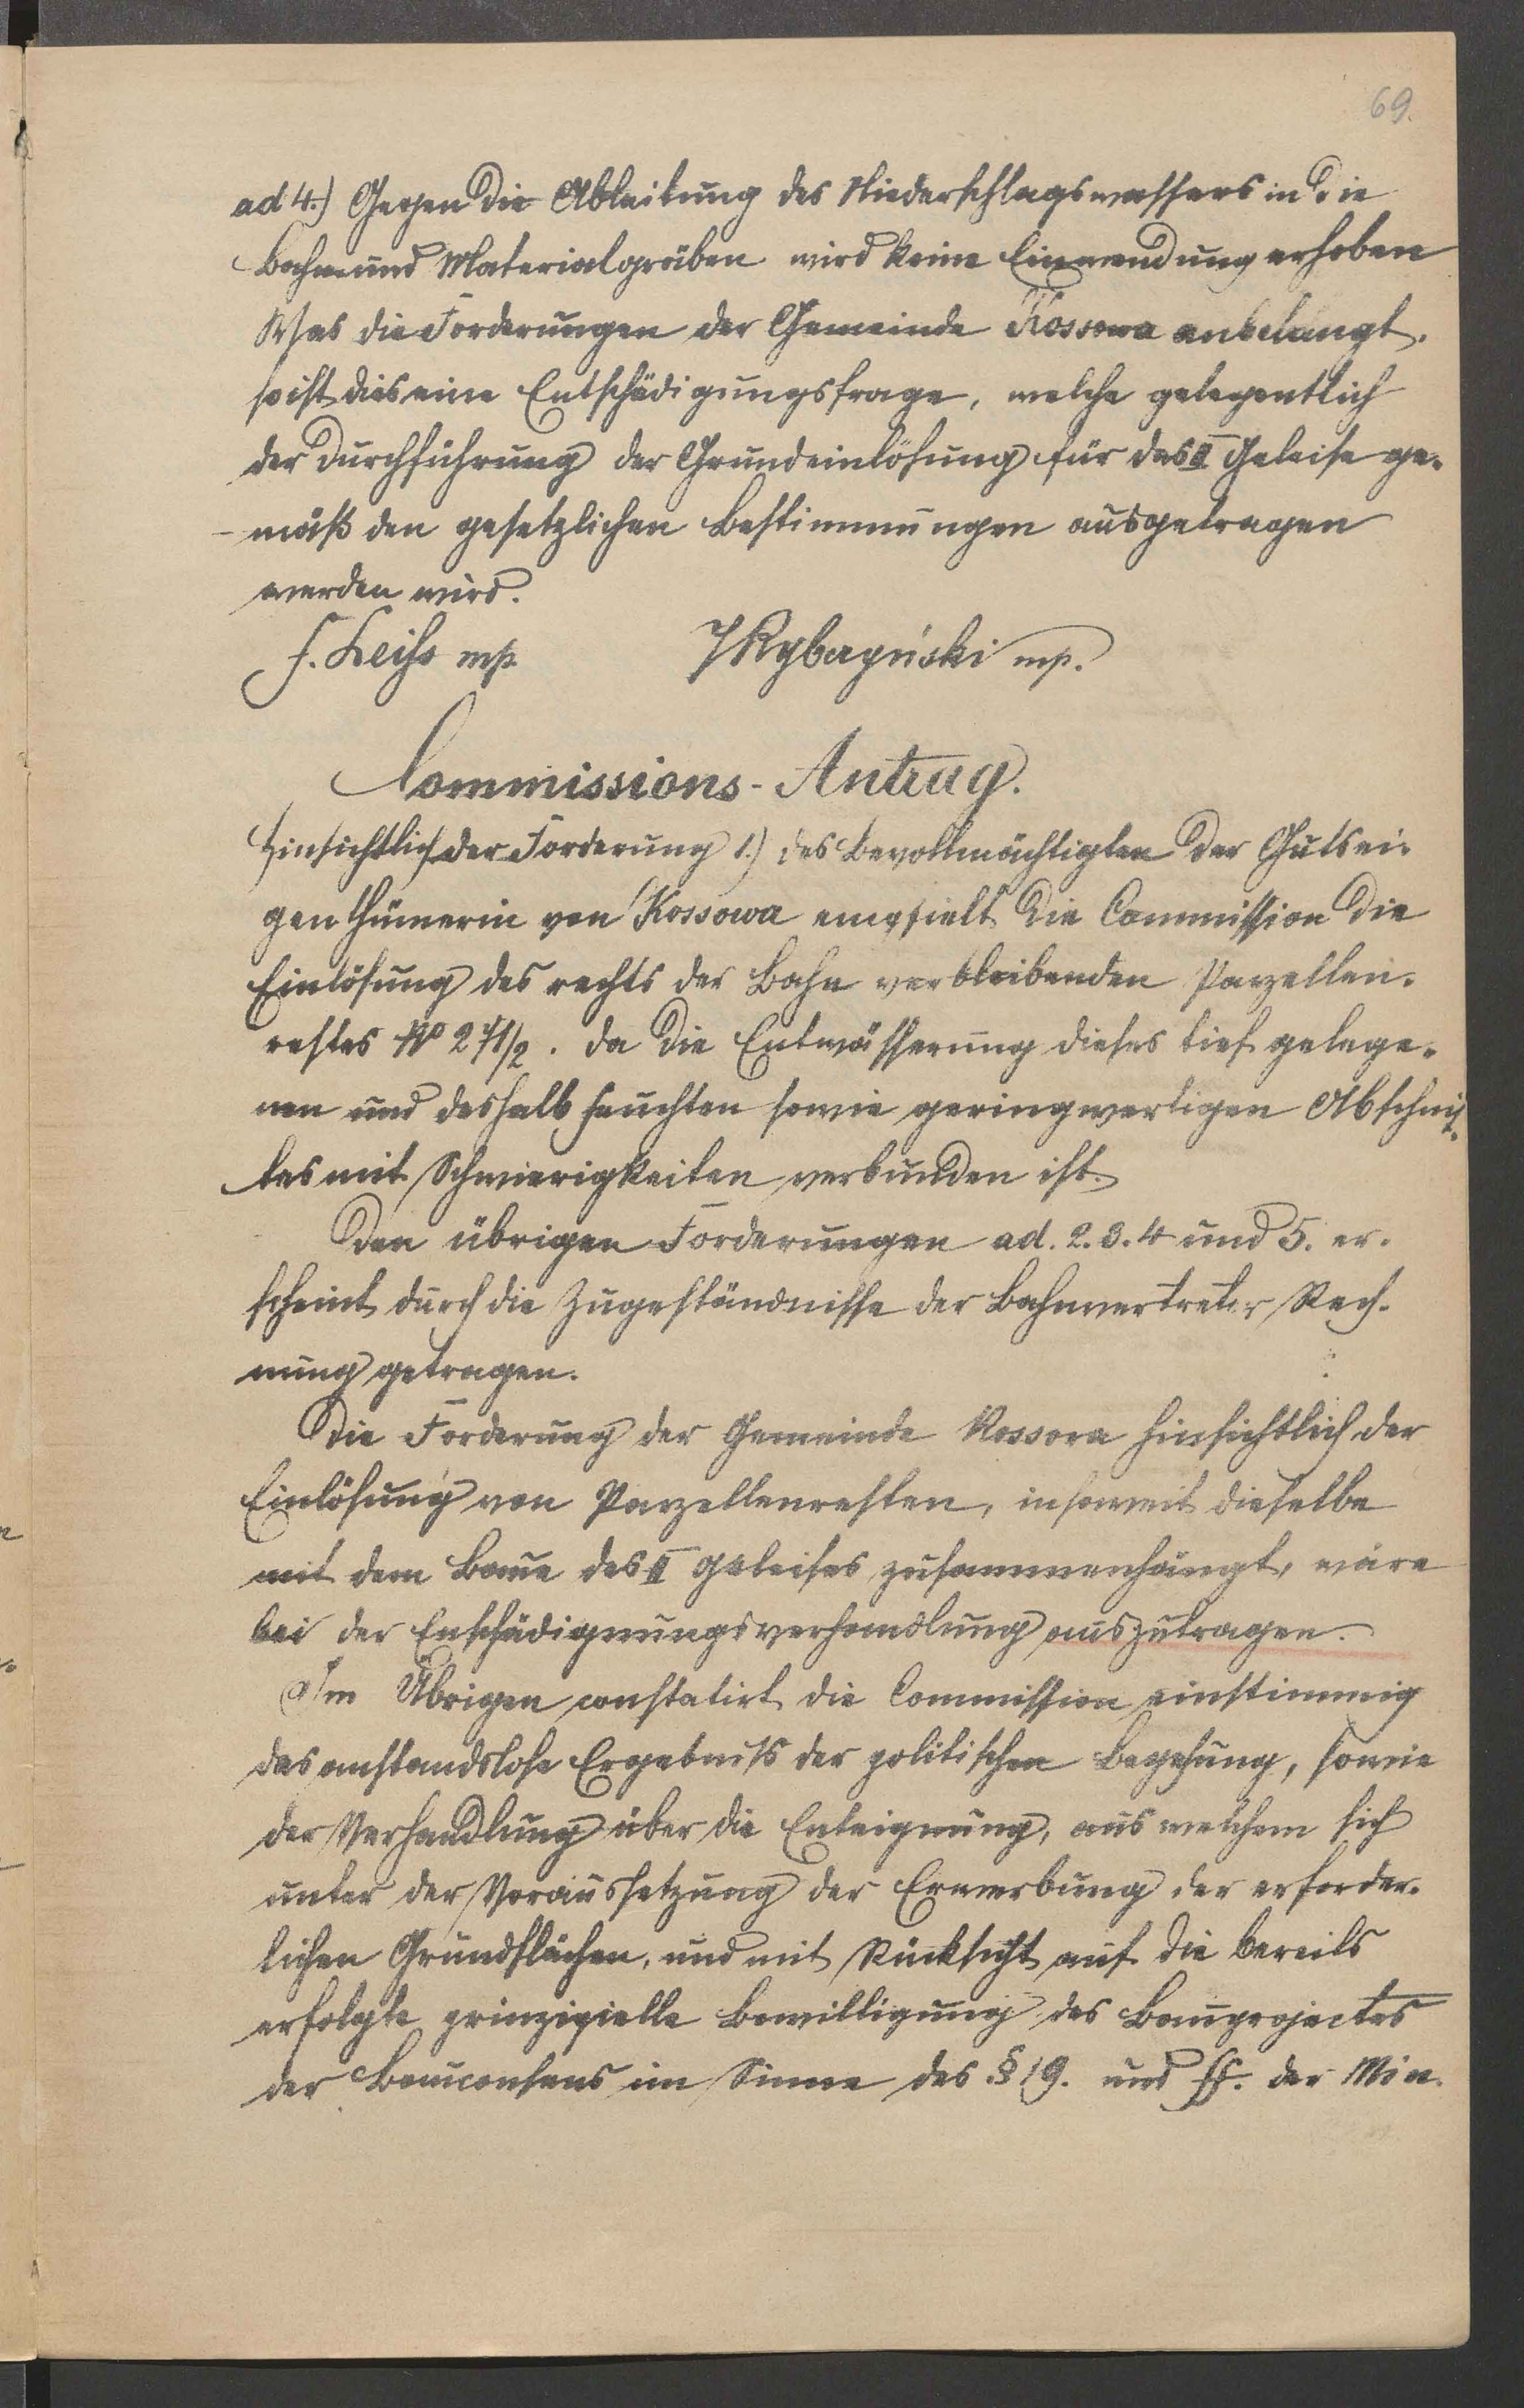 69.
ad 4.) Gegen die Ableitung des Niederschlagswassers in die
Bahn und Materialgräben wird keine Einwendung erhoben
Was die Forderungen der Gemeinde Kossowa anbelangt,
so ist dies eine Entschädigungsfrage, welche gelegentlich
der Durchführung der Grundeinlösung für das II Geleise ge-
mäß den gesetzlichen Bestimmungen ausgetragen
werden wird.
F. Leiss mp. mp.
Commissions-Antrag.
Hinsichtlich der Forderung 1.) des Bevollmächtigten der Gutsei-
genthümerin von Kossowa empfielt die Commission die
Einlösung des rechts der Bahn verbleibenden Parzellen-
restes No 271/2. da die Entwässerung dieses tief gelege-
nen und deshalb feuchten sowie geringwertigen Abschnit-
tes mit Schwierigkeiten verbunden ist.
Den übrigen Forderungen ad. 2. 3. 4 und 5. er-
scheint durch die Zugeständnisse der Bahnvertreter Rech-
nung getragen.
Die Forderung der Gemeinde Kossova hinsichtlich der
Einlösung von Parzellenresten, insoweit dieselbe
mit dem Baue des II Geleises zusammenhängt, wäre
bei der Enschädignungsverhandlung auszutragen.
Im Übrigen constatirt die Commission einstimmig
das anstandslose Ergebniß der politischen Begehung, sowie
der Verhandlung über die Enteignung, aus welchem sich
unter der Voraussetzung der Erwerbung der erforder-
lichen Grundflächen, und mit Rücksicht auf die bereits
erfolgte prinzipielle Bewilligung des Bauprojectes
der Bauconsens im Sinne des § 19. und ff. der Min.